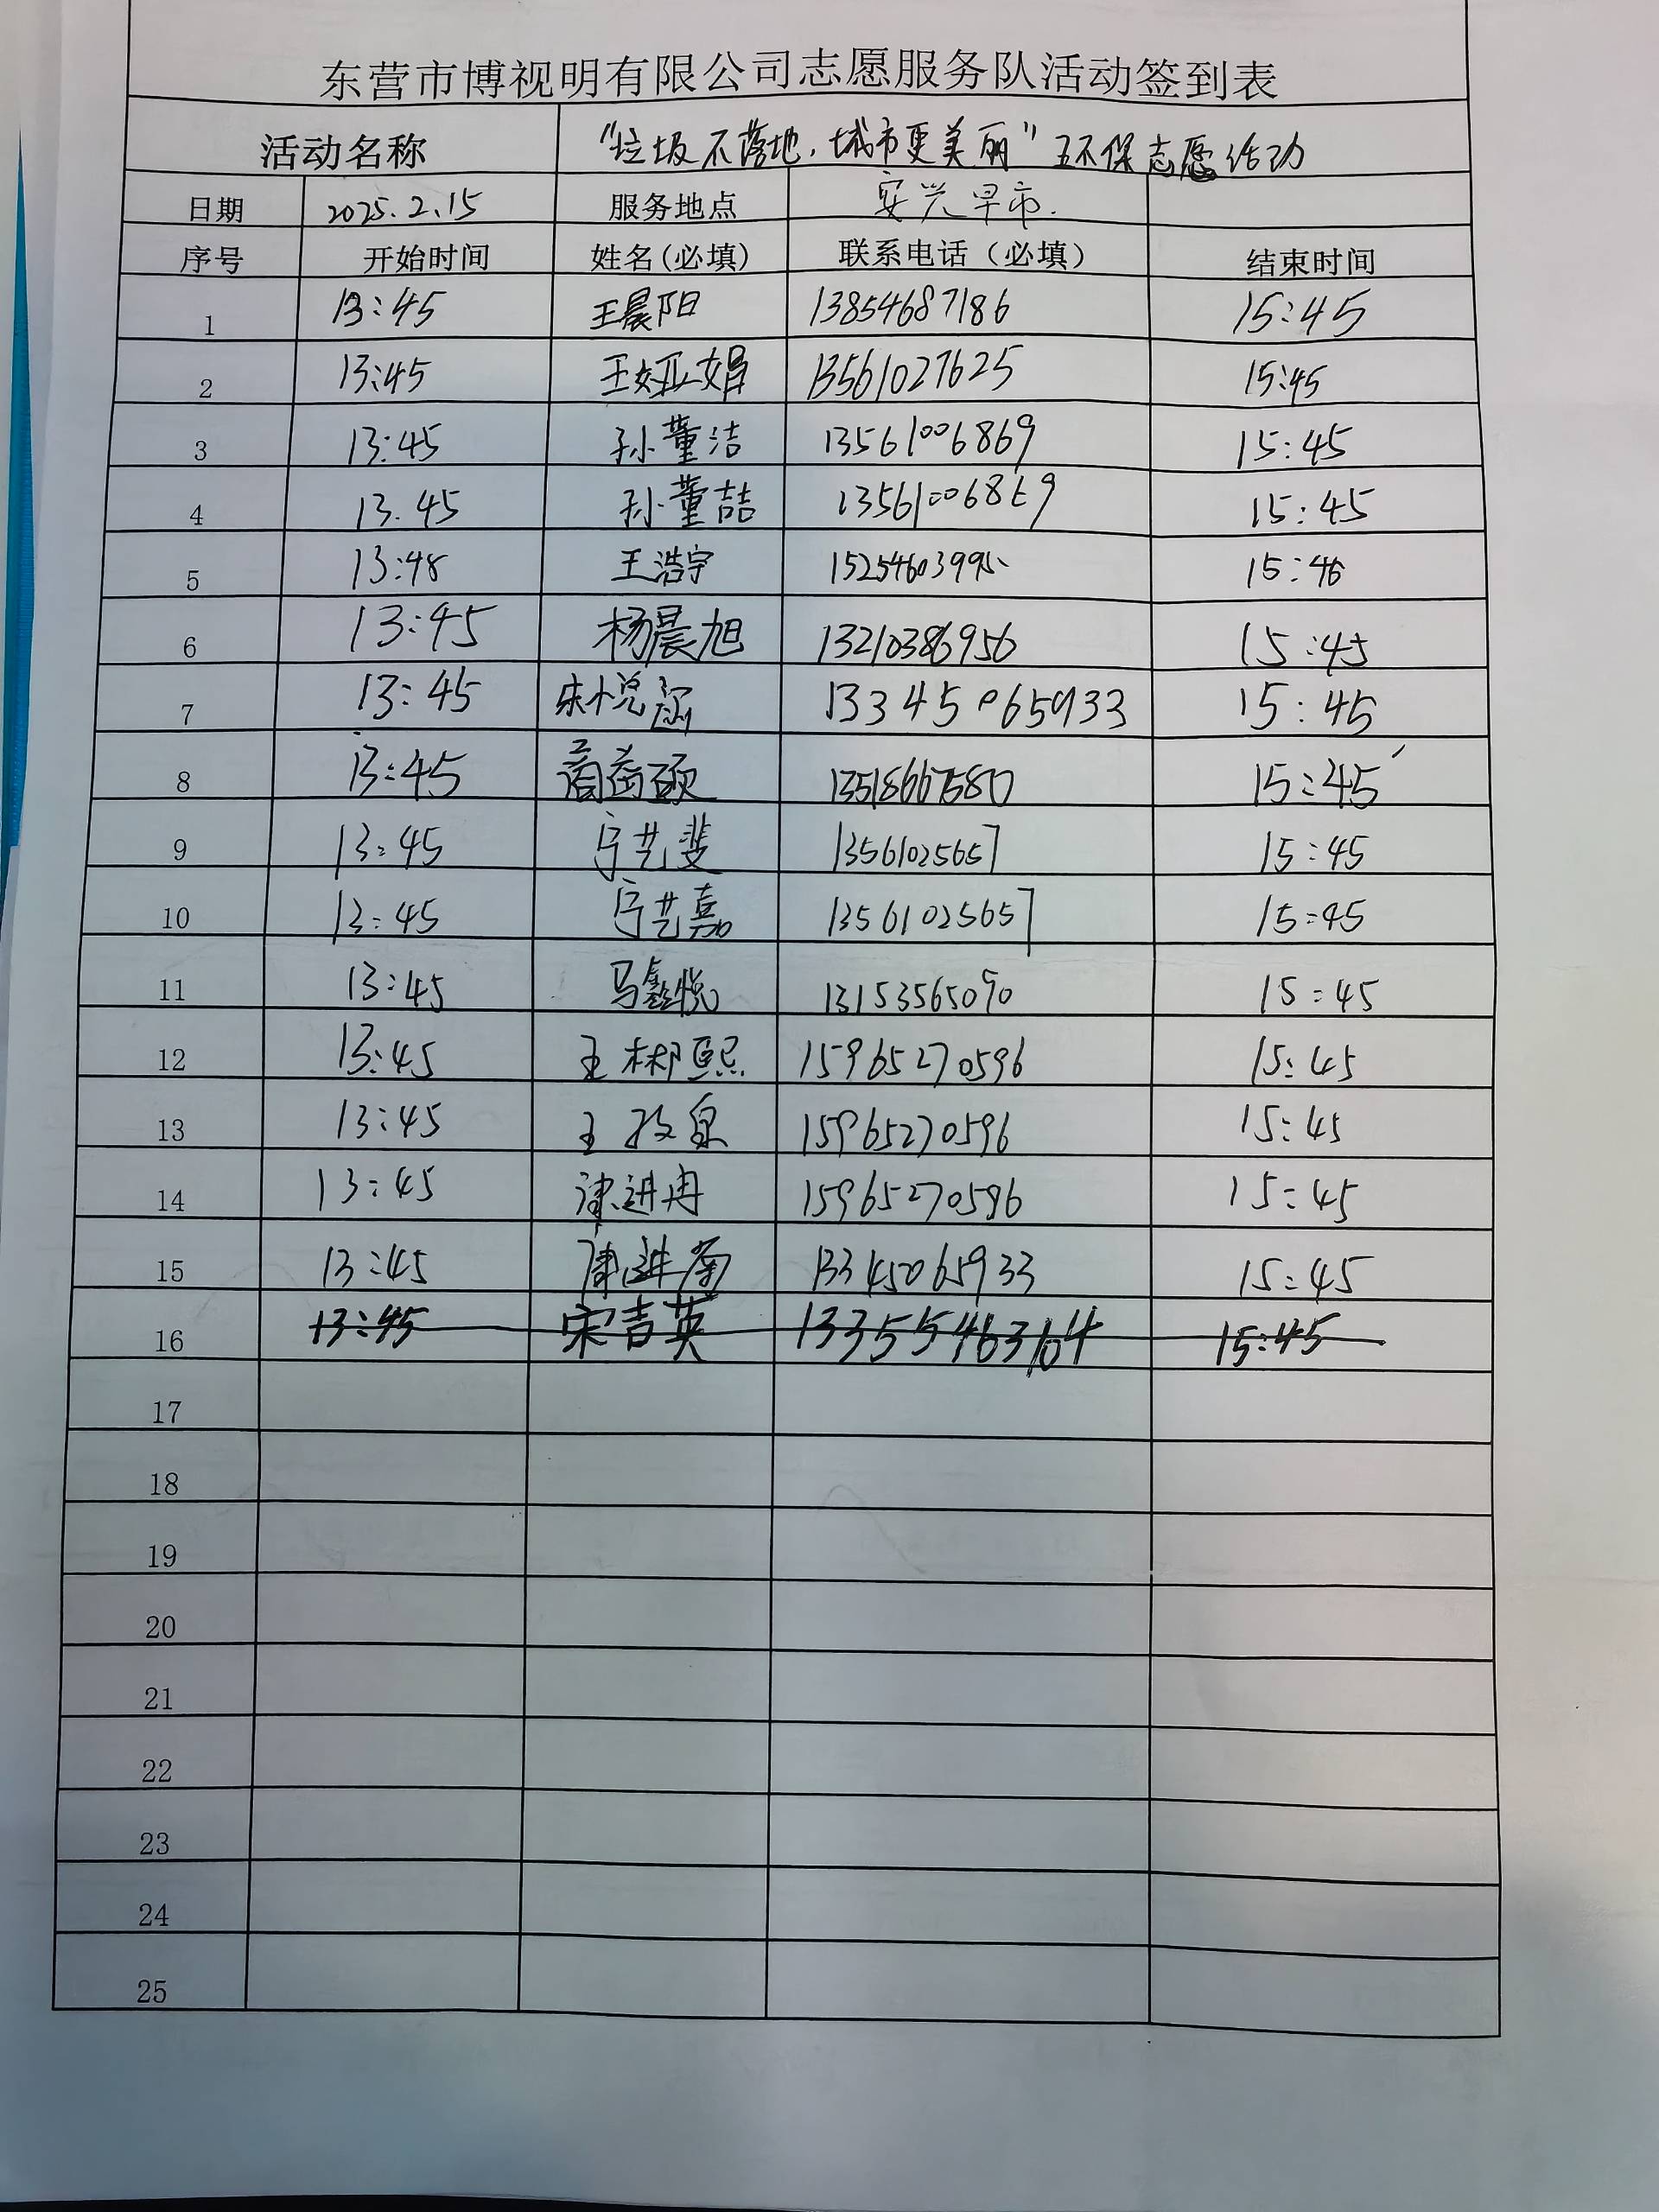 东营市博视明有限公司志愿服务队活动签到表
活动名称 "垃圾不落地，城市更美丽"环保志愿活动
日期 2025.2.15 服务地点 安兴早市.
序号 开始时间 姓名(必填) 联系电话（必填） 结束时间
1 13:45 王晨阳 13854687186 15:45
2 13:45 王娅娟 13561027625 15:45
3 13:45 孙董洁 13561006869 15:45
4 13.45 孙董喆 13561006869 15:45
5 13:48 王浩宇 15:46
6 13:45 杨晨旭 13210386956 15:45
7 13:45 宋悦涵 13345065933 15:45
8 13:45 15:45
9 13:45 宁艺斐 13561025657 15:45
10 13:45 宁艺嘉 13561025657 15:45
11 13:45 马鑫悦 13153565090 15:45
12 13:45 王彬熙 15965270596 15:45
13 13:45 王 15965270596 15:45
14 13:45 15965270596 15:45
15 13:45 13345065933 15:45
16 13:45 宋吉英 13355463104 15:45
17
18
19
20
21
22
23
24
25